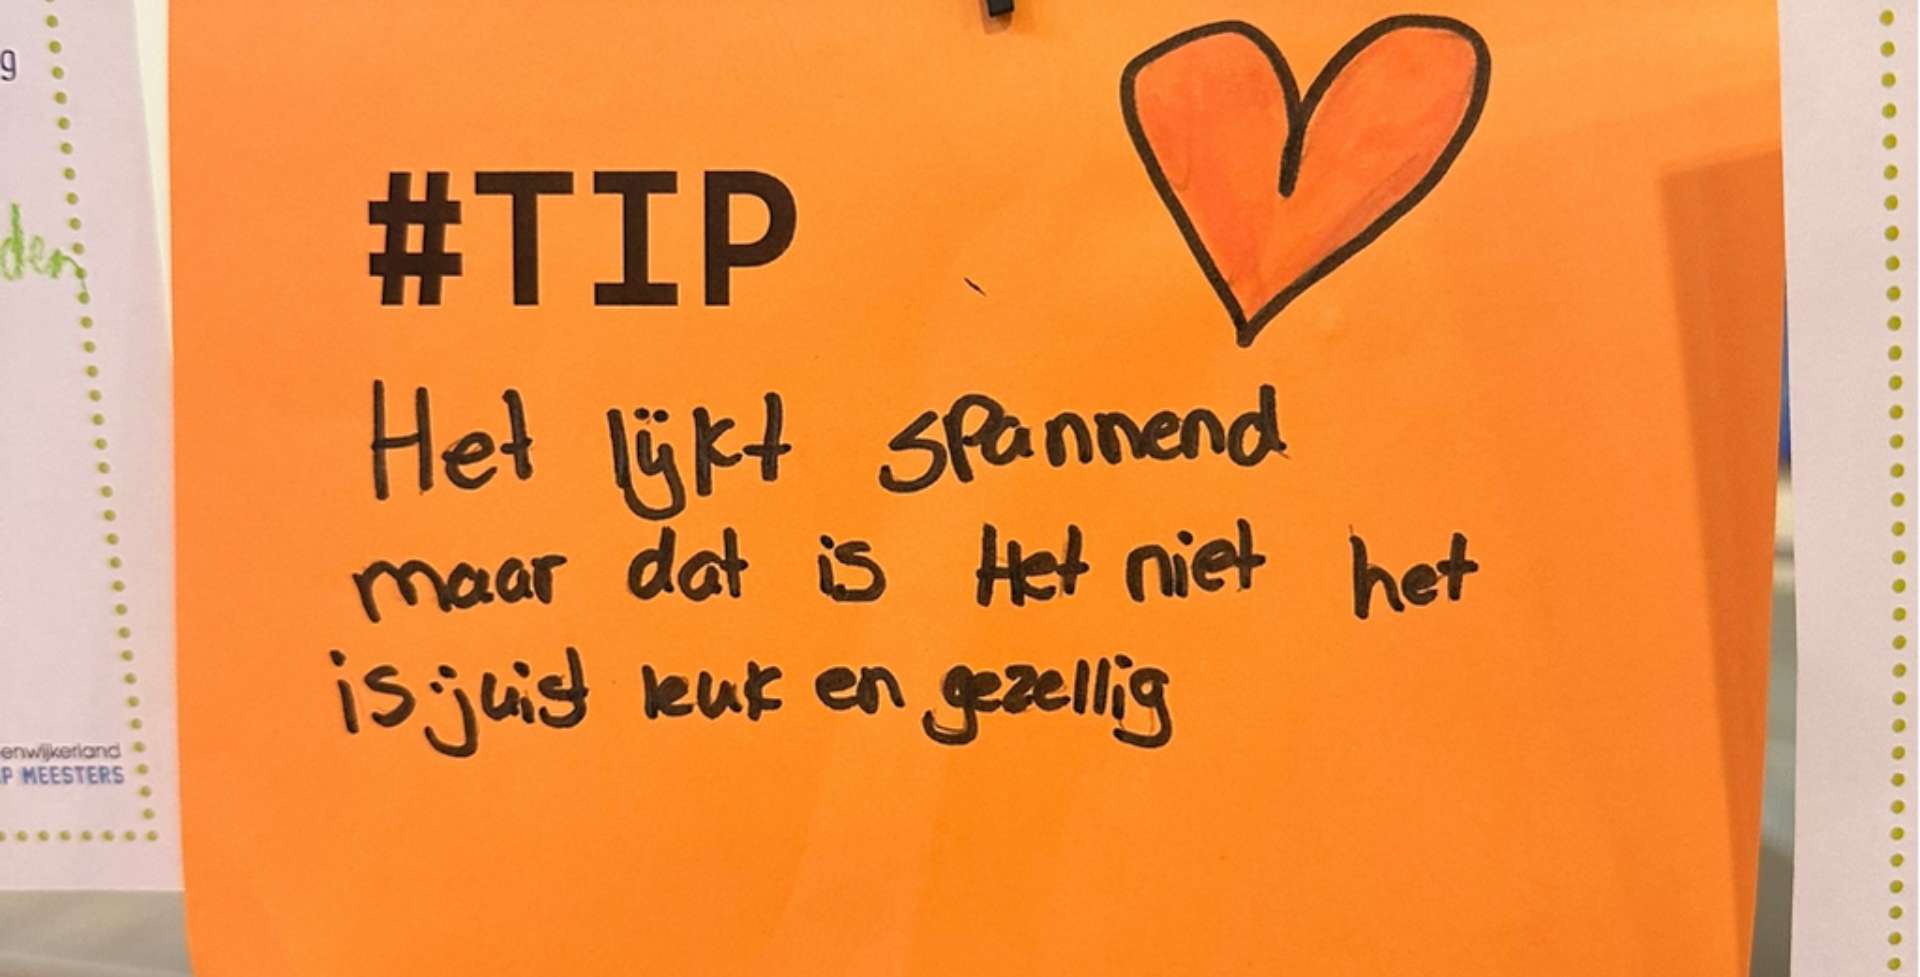 #TIP
Het lijkt spannend
maar dat is Het niet het
is juist leuk en gezellig
g
den
enwijkerland
P MEESTERS